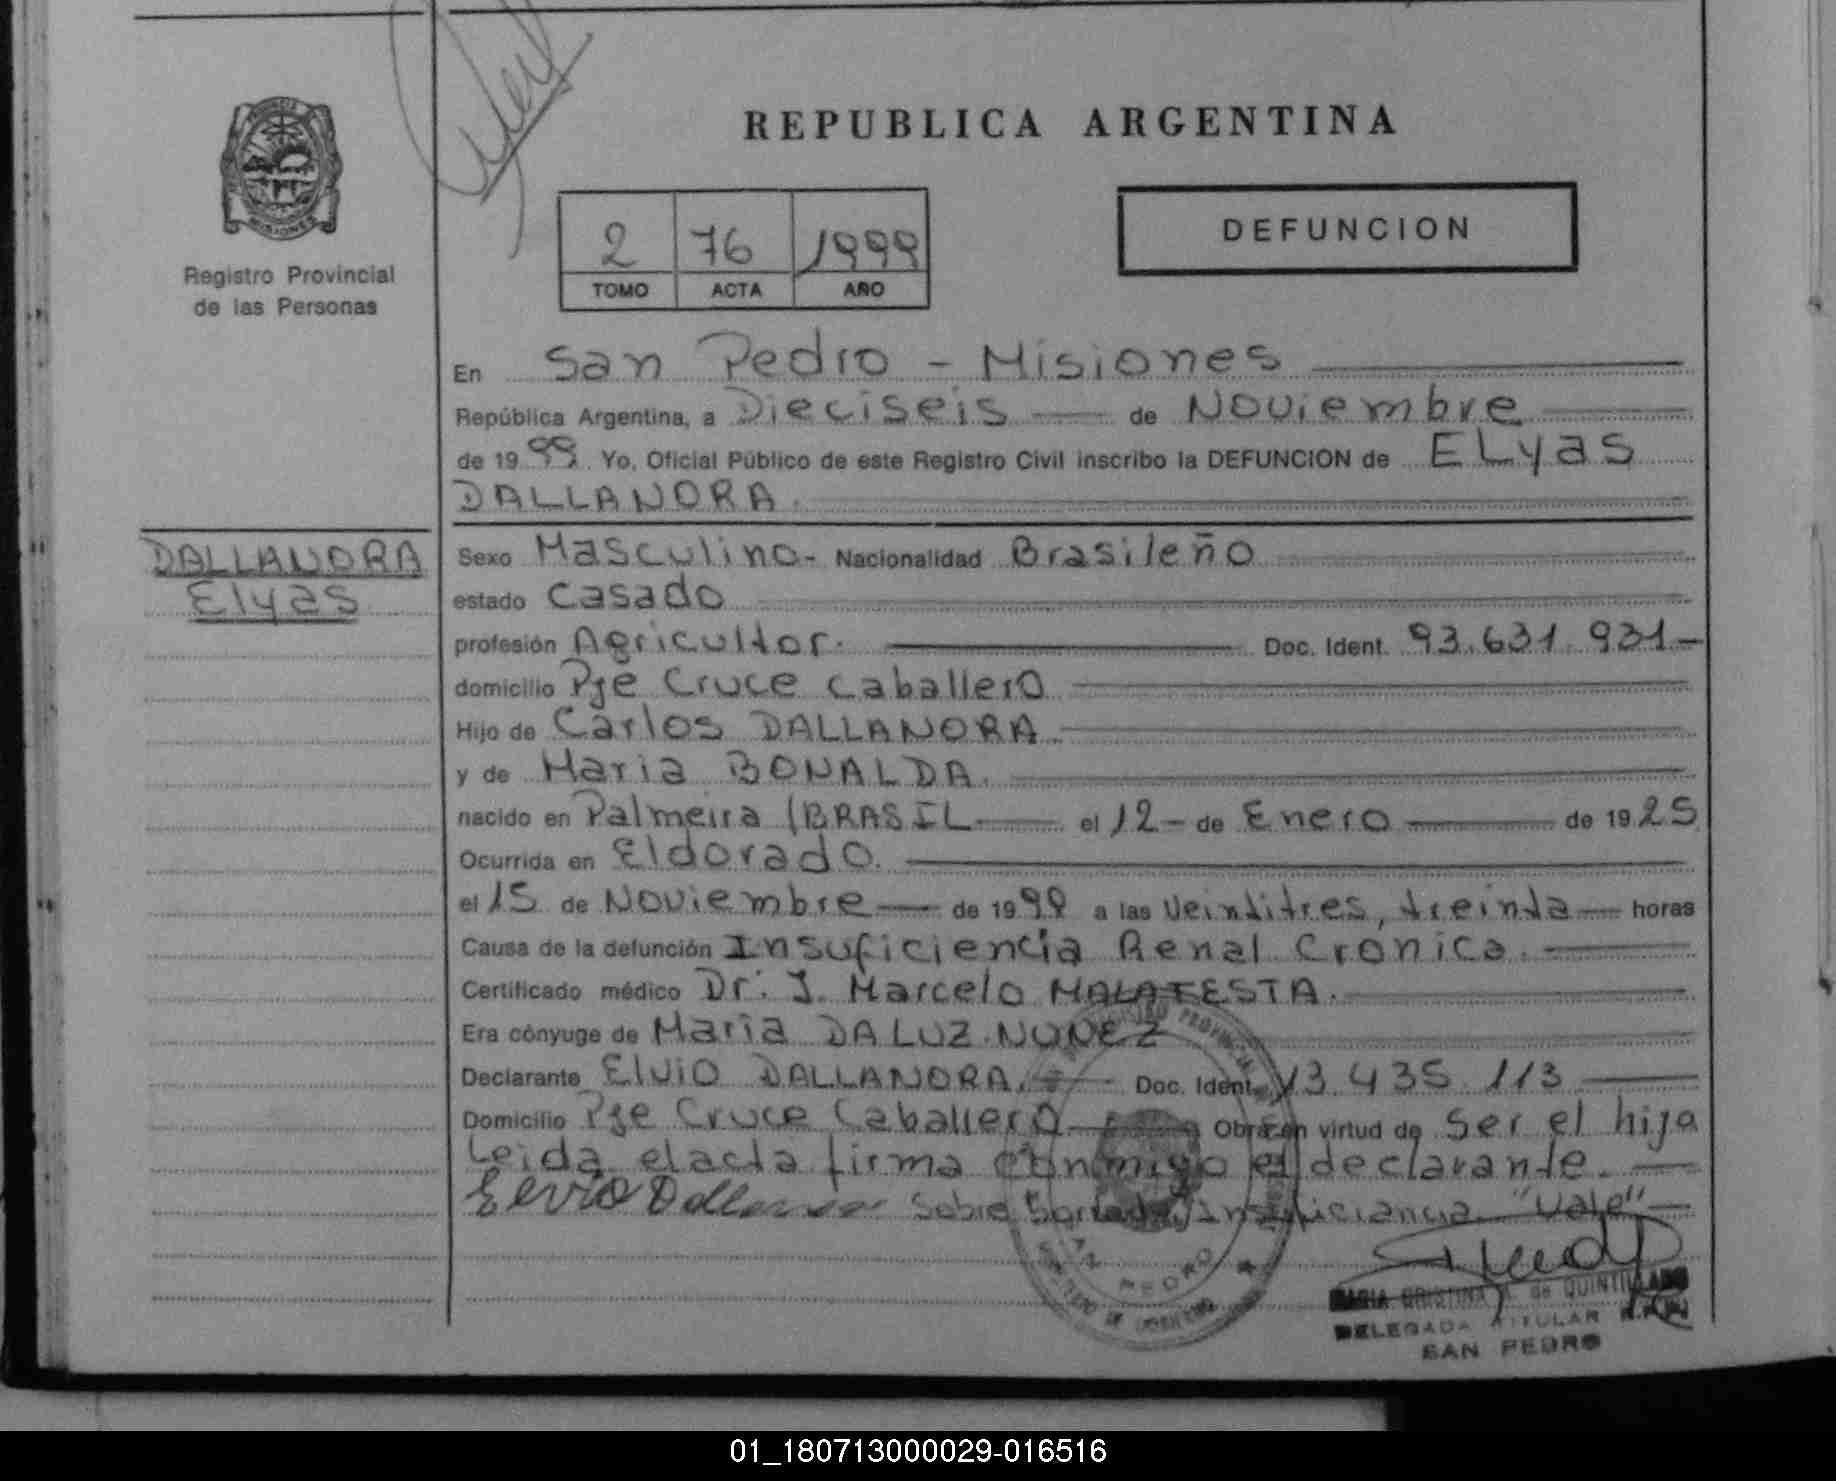 REPUBLICA ARGENTINA
Registro Provincial
de las Personas
2 76 1999
TOMO ACTA AÑO
DEFUNCION
En San Pedro - Misiones
República Argentina, a Dieciseis de Noviembre
de 1999. Yo, Oficial Público de este Registro Civil inscribo la DEFUNCION de ELyas
DALLANORA.
DALLANORA
Elyas
Sexo Masculino- Nacionalidad Brasileño
estado casado
profesión Agricultor. Doc. Ident. 93.631.931-
domicilio Pje Cruce Caballero
Hijo de Carlos DALLANORA.
y de Maria BONALDA.
nacido en Palmeira (BRASIL el 12- de Enero de 1925
Ocurrida en Eldorado.
el 15 de Noviembre de 1999 a las Veintitres, treinta horas
Causa de la defunción Insuficiencia Renal Cronica.
Certificado médico Dr. J. Marcelo MALATESTA.
Era cónyuge de Maria DA LUZ NUNEZ
Declarante Elvio DALLANORA. Doc. Ident. 13.435.113
Domicilio Pje Cruce Caballero Obra en virtud de Ser el hijo
Leida el acta firma conmigo el declarante.
Elvio Dallanora Sobre Borrado, Insuficiencia "Vale"
SAN PEDRO
MARIA CRISTINA de QUINTILLAN
DELEGADA TITULAR
SAN PEDRO
01_180713000029-016516